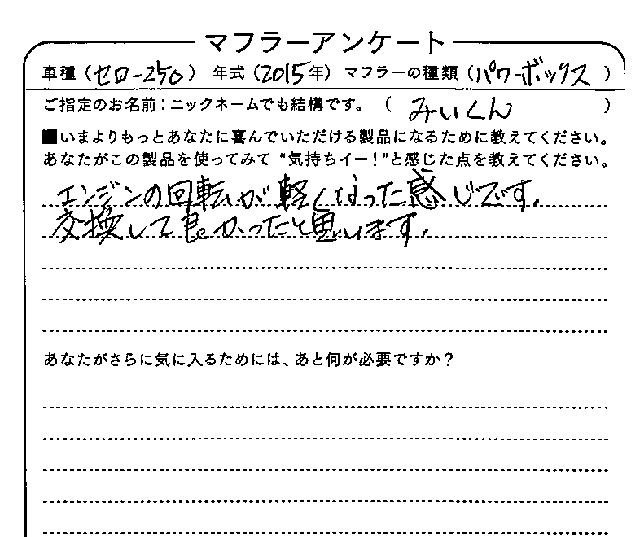 マフラーアンケート
車種（セロー250） 年式（2015年）マフラーの種類（パワーボックス）
ご指定のお名前：ニックネームでも結構です。（みぃくん）
■いまよりもっとあなたに喜んでいただける製品になるために教えてください。
あなたがこの製品を使ってみて“気持ちイー！”と感じた点を教えてください。
エンジンの回転が軽くなった感じです。
交換して良かったと思います。
あなたがさらに気に入るためには、あと何が必要ですか？